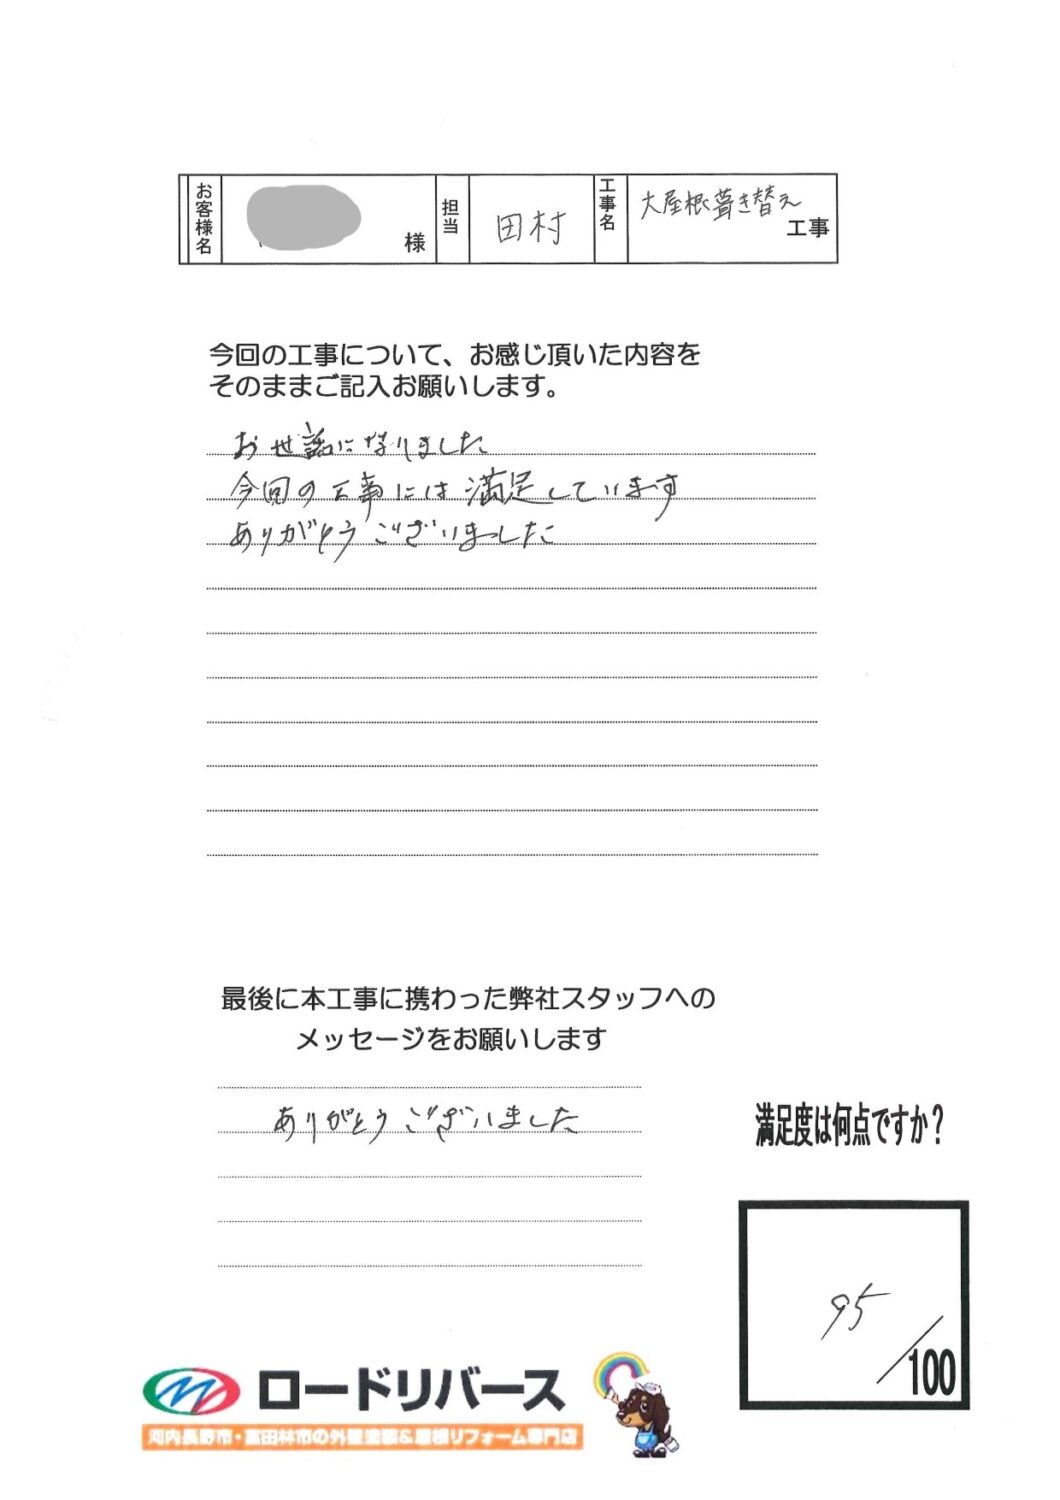 お客様名
様
担当
田村
工事名
大屋根葺き替え
工事
今回の工事について、お感じ頂いた内容を
そのままご記入お願いします。
お世話になりました
今回の工事には満足しています
ありがとうございました
最後に本工事に携わった弊社スタッフへの
メッセージをお願いします
ありがとうございました
満足度は何点ですか？
95
/100
ロードリバース
河内長野市・富田林市の外壁塗装&屋根リフォーム専門店